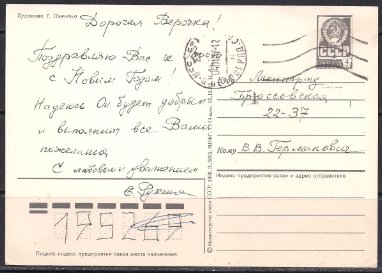 Художник Г. Панченко
Дорогая Верочка!
Поздравляю Вас
с Новым Годом!
Надеюсь Он будет добрым
и выполнит все Ваши
пожелания
С любовью и уважением
Е.
СССР
Ленинград
22-37
Кому В. В. Германович
Индекс предприятия связи и адрес отправителя
195269
Пишите индекс предприятия связи места назначения